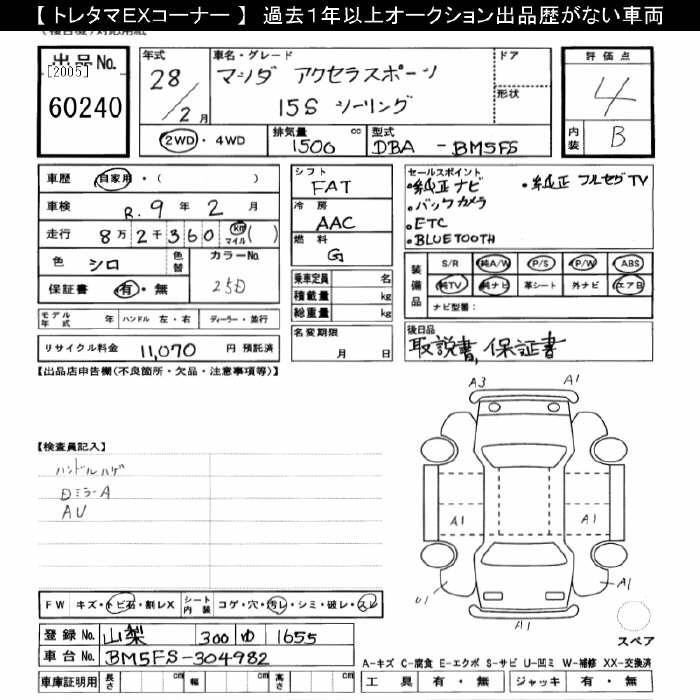 【 トレタマＥＸコーナー 】 過去１年以上オークション出品歴がない車両
出品No.
[2005]
60240
年式
28/2月
車名・グレード
マツダ アクセラスポーツ
15S ツーリング
ドア
形状
評価点
4
内装
B
2WD・4WD
排気量
1500 cc
型式
DBA - BM5FS
車歴
自家用・( )
車検
R.9 年 2 月
走行
8万2千360 km マイル ( )
色
シロ
色替
カラーNo.
25D
保証書
有・無
シフト
FAT
冷房
AAC
燃料
G
乗車定員 名
積載量 kg
総重量 kg
セールスポイント
・純正ナビ ・純正フルセグTV
・バックカメラ
・ETC
・BLUETOOTH
装備品
S/R 純A/W P/S P/W ABS
純TV 純ナビ 革シート 外ナビ エアB
ナビ型番：
モデル年式 年 ハンドル 左・右 ディーラー・並行
リサイクル料金 11,070 円 預託済
名変期限
月 日
後日品
取説書, 保証書
【出品店申告欄(不良箇所・欠品・注意事項等)】
【検査員記入】
ハンドルハゲ
AU
A3 A1
A1 A1
U1 A1
A1
スペア
FW キズ・トビ石・割レX シート内装 コゲ・穴・汚レ・シミ・破レ・スレ
登録No. 山梨 300 ゆ 1655
車台No. BM5FS-304982
車庫証明用 長さ cm 幅 cm 高さ cm
A-キズ C-腐食 E-エクボ S-サビ U-凹ミ W-補修 XX-交換済
工具 有・無 ジャッキ 有・無